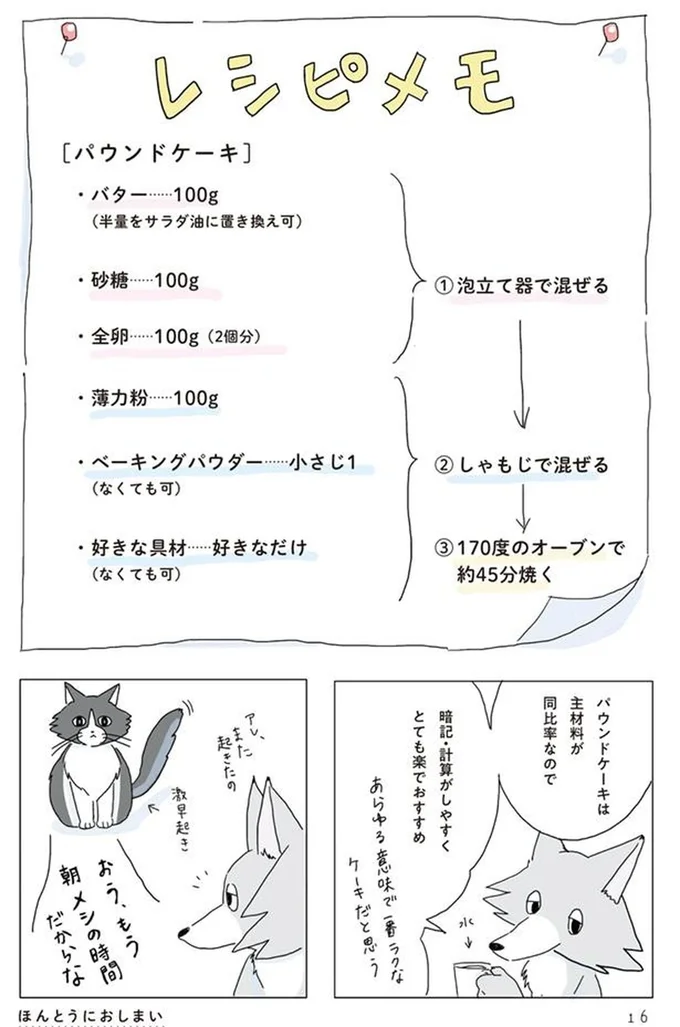 レシピメモ
[パウンドケーキ]
・バター……100g
(半量をサラダ油に置き換え可)
・砂糖……100g
・全卵……100g(2個分)
・薄力粉……100g
・ベーキングパウダー……小さじ1
(なくても可)
・好きな具材……好きなだけ
(なくても可)
①泡立て器で混ぜる
②しゃもじで混ぜる
③170度のオーブンで
約45分焼く
パウンドケーキは
主材料が
同比率なので
暗記・計算がしやすく
とても楽でおすすめ
あらゆる意味で一番ラクな
ケーキだと思う
水
アレ、
また
起きたの
激早起き
おう、もう
朝メシの時間
だからな
ほんとうにおしまい
16